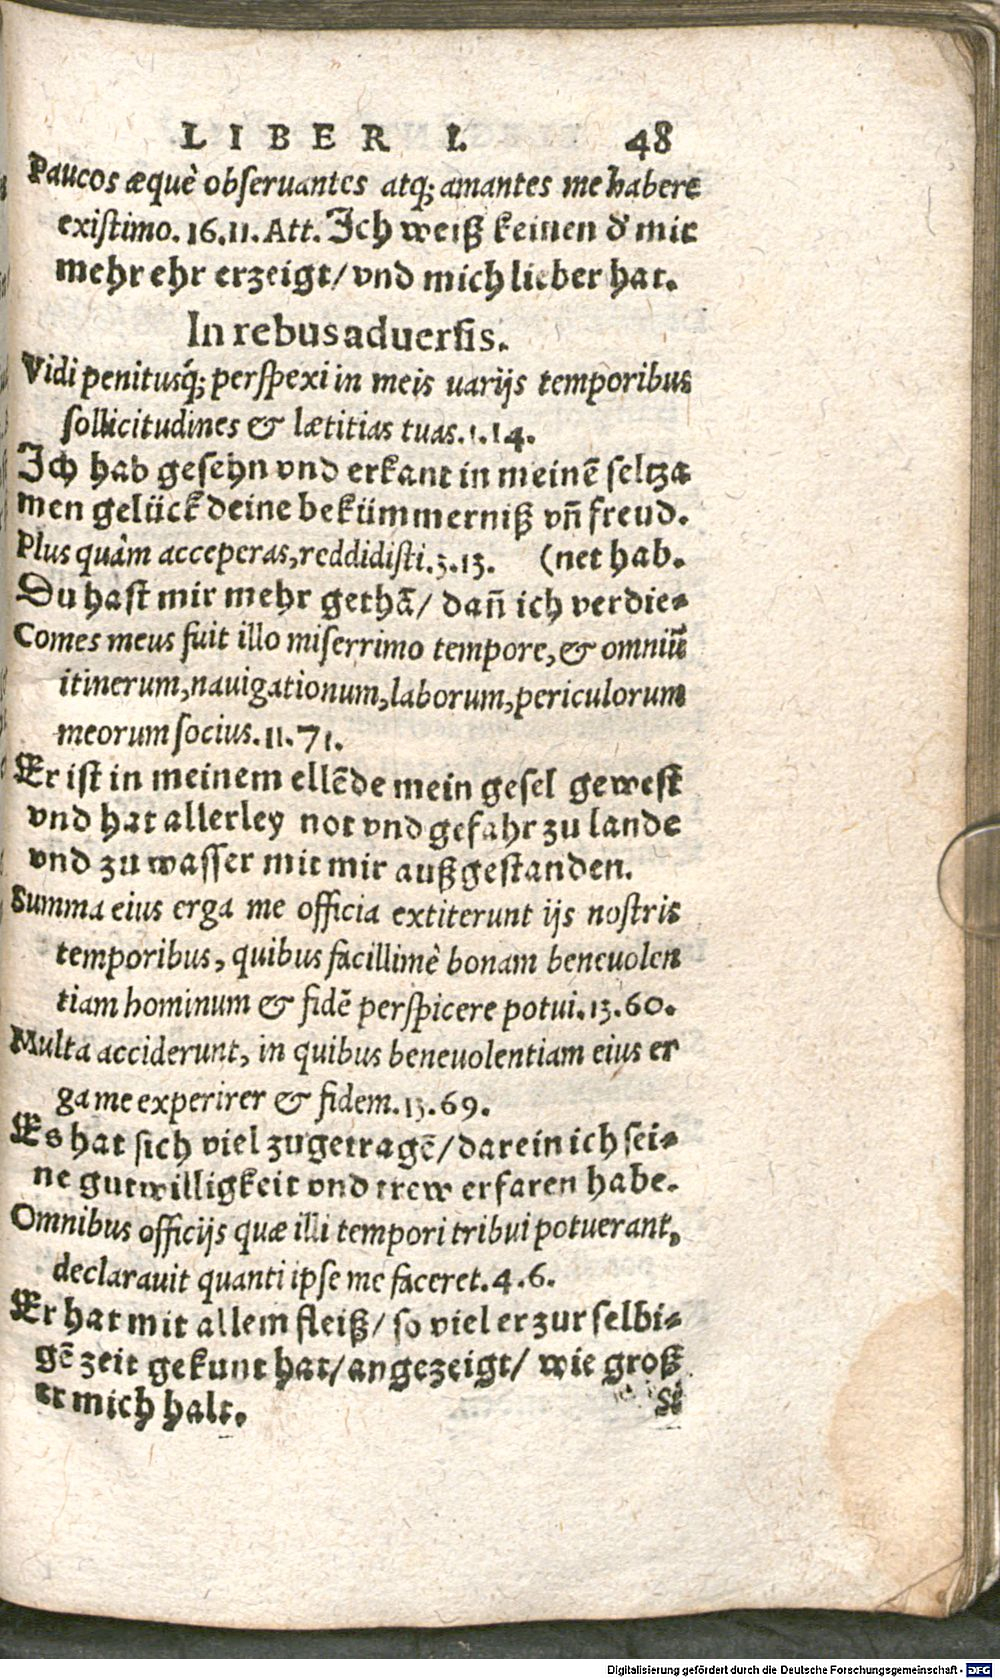 LIBER I. 48
Paucos æquè obſeruantes atq; amantes me habere
exiſtimo. 16.11. Att. Ich weiß keinen d' mir
mehr ehr erzeigt/ vnd mich lieber hat.
In rebus aduerſis.
Vidi penitusq́; perſpexi in meis uarijs temporibus
ſollicitudines & lætitias tuas. 1.14.
Ich hab geſehn vnd erkant in meinē ſeltza
men gelück deine bekümmerniß vñ freud.
Plus quàm acceperas, reddidiſti. 3.13. (net hab.
Du haſt mir mehr gethā/ dañ ich verdie⸗
Comes meus fuit illo miſerrimo tempore, & omniū
itinerum, nauigationum, laborum, periculorum
meorum ſocius. 11.71.
Er iſt in meinem ellēde mein geſel geweſt
vnd hat allerley not vnd gefahr zu lande
vnd zu waſſer mit mir außgeſtanden.
Summa eius erga me officia extiterunt ijs noſtris
temporibus, quibus facillimè bonam beneuolen
tiam hominum & fidē perſpicere potui. 13.60.
Multa acciderunt, in quibus beneuolentiam eius er
ga me experirer & fidem. 13.69.
Es hat ſich viel zugetragē/ darein ich ſei⸗
ne gutwilligkeit vnd trew erfaren habe.
Omnibus officijs quæ illi tempori tribui potuerant,
declarauit quanti ipſe me faceret. 4.6.
Er hat mit allem fleiß/ ſo viel er zur ſelbi⸗
gē zeit gekunt hat/ angezeigt/ wie groß
er mich halt. Si
Digitalisierung gefördert durch die Deutsche Forschungsgemeinschaft - DFG